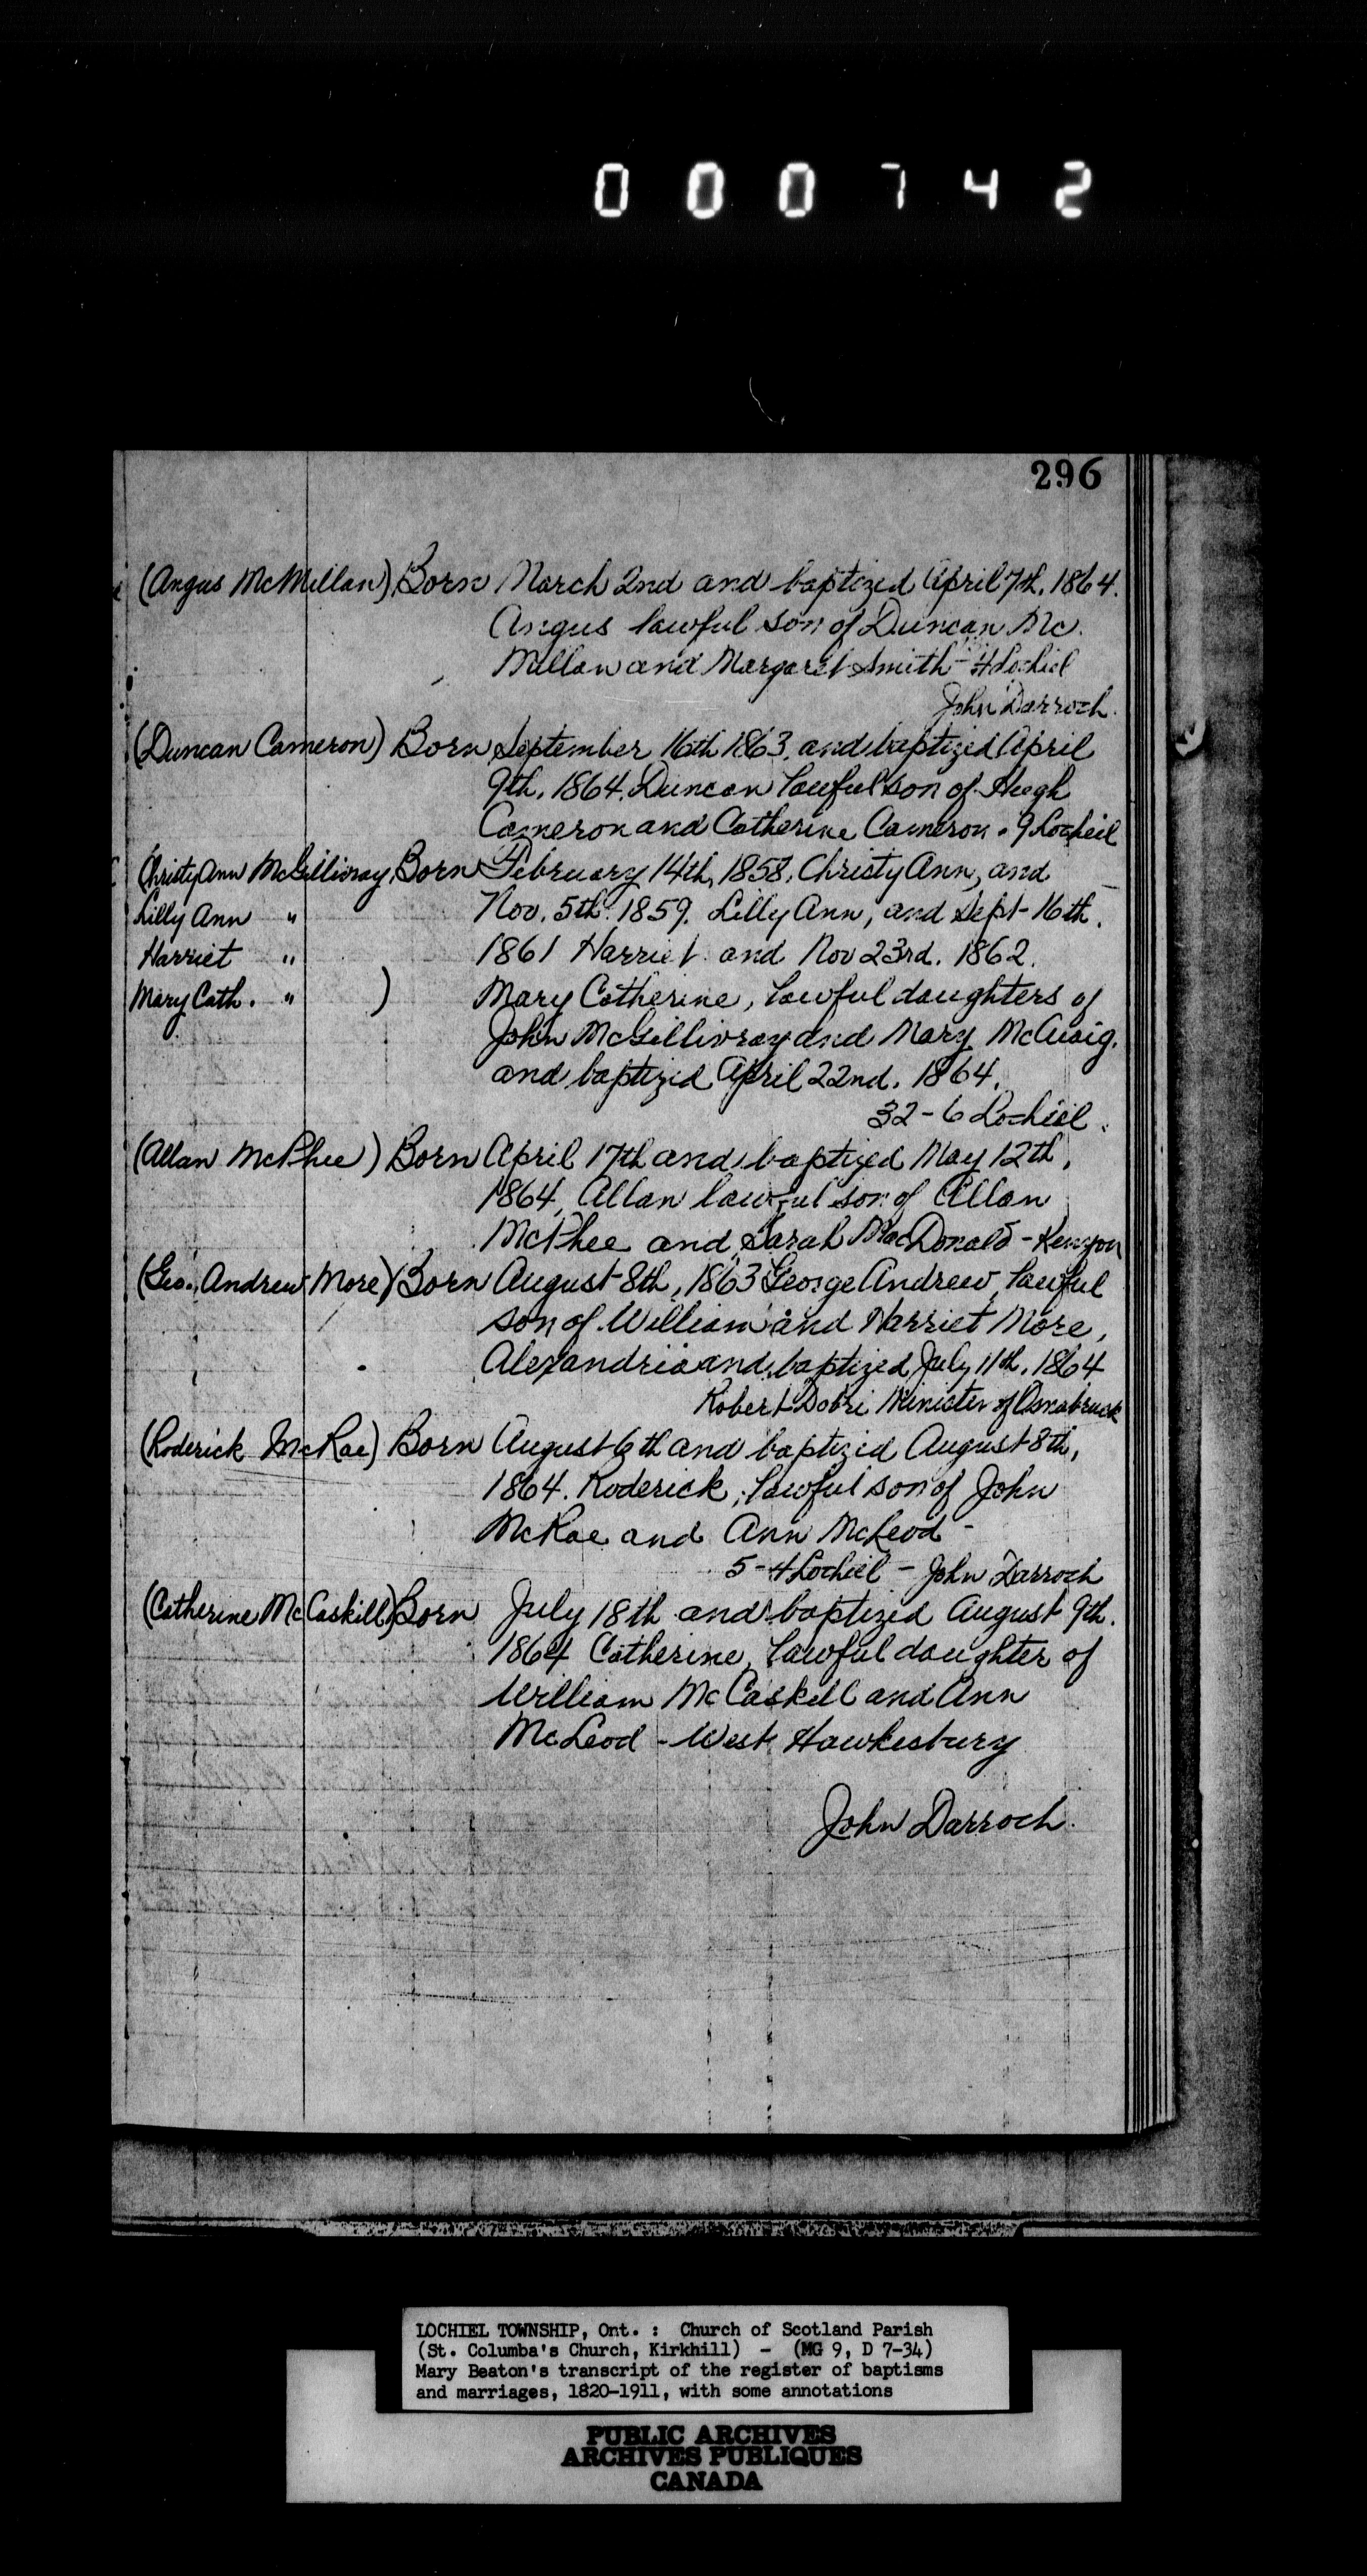 000742
296
(Angus McMillan) Born March 2nd and baptized April 7th, 1864.
Angus lawful son of Duncan Mc.
Millan and Margaret Smith - 4 Lochiel
John Darroch.
(Duncan Cameron) Born September 16th 1863, and baptized April
9th, 1864. Duncan lawful son of Hugh
Cameron and Catherine Cameron - 9 Locheil
Christy Ann McGillivray, Born February 14th, 1858, Christy Ann, and
Lilly Ann " Nov. 5th. 1859. Lilly Ann, and Sept 16th.
Harriet " 1861 Harriet and Nov 23rd. 1862.
Mary Cath. " ) Mary Catherine, lawful daughters of
John McGillivray and Mary McCuaig.
and baptized April 22nd. 1864.
32-6 Lochiel.
(Allan McPhee) Born April 17th and baptized May 12th,
1864, Allan lawful son of Allan
McPhee and Sarah MacDonald - Kenyon
(Geo. Andrew More) Born August 8th, 1863 George Andrew, lawful
son of William and Harriet More,
Alexandria and baptized July 11th, 1864
Robert Dobri Minister of Osnabruck
(Roderick McRae) Born August 6th and baptized August 8th,
1864. Roderick, lawful son of John
McRae and Ann McLeod -
5-4 Lochiel - John Darroch
(Catherine McCaskill) Born July 18th and baptized August 9th.
1864 Catherine, lawful daughter of
William McCaskill and Ann
McLeod - West Hawkesbury
John Darroch.
LOCHIEL TOWNSHIP, Ont. : Church of Scotland Parish
(St. Columba's Church, Kirkhill) - (MG 9, D 7-34)
Mary Beaton's transcript of the register of baptisms
and marriages, 1820-1911, with some annotations
PUBLIC ARCHIVES
ARCHIVES PUBLIQUES
CANADA